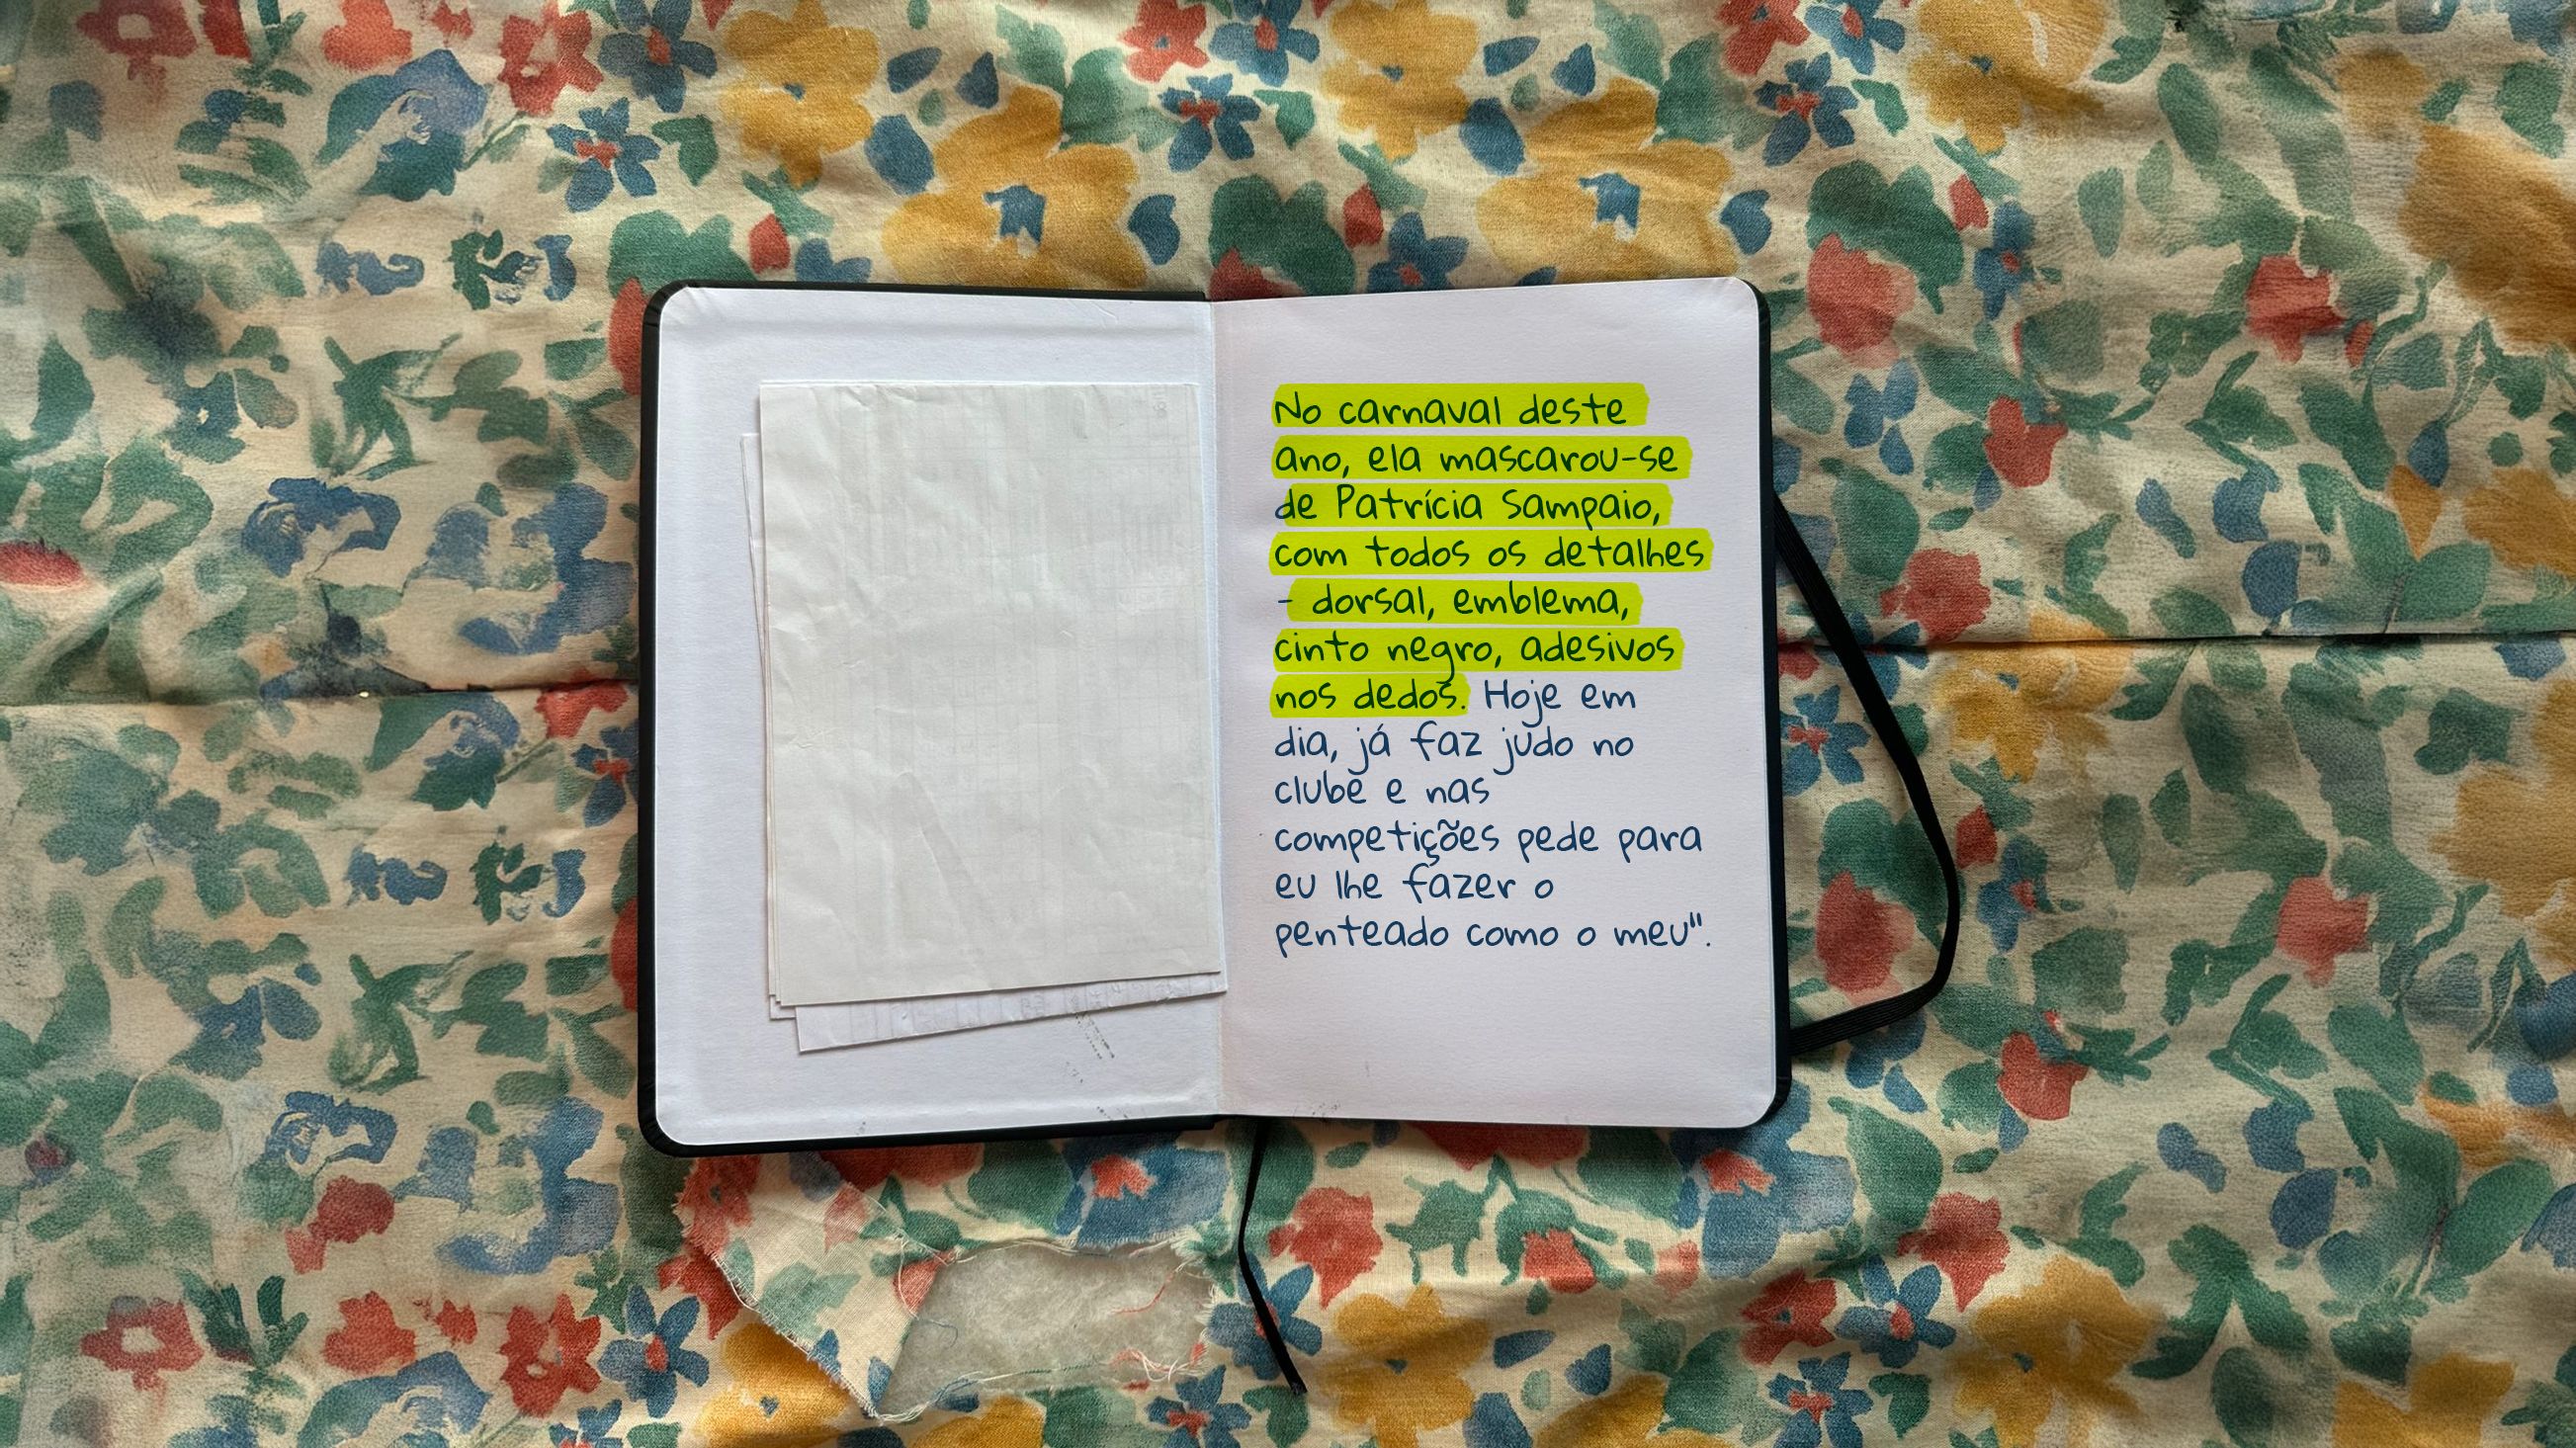 No carnaval deste
ano, ela mascarou-se
de Patrícia Sampaio,
com todos os detalhes
- dorsal, emblema,
cinto negro, adesivos
nos dedos. Hoje em
dia, já faz judo no
clube e nas
competições pede para
eu lhe fazer o
penteado como o meu".